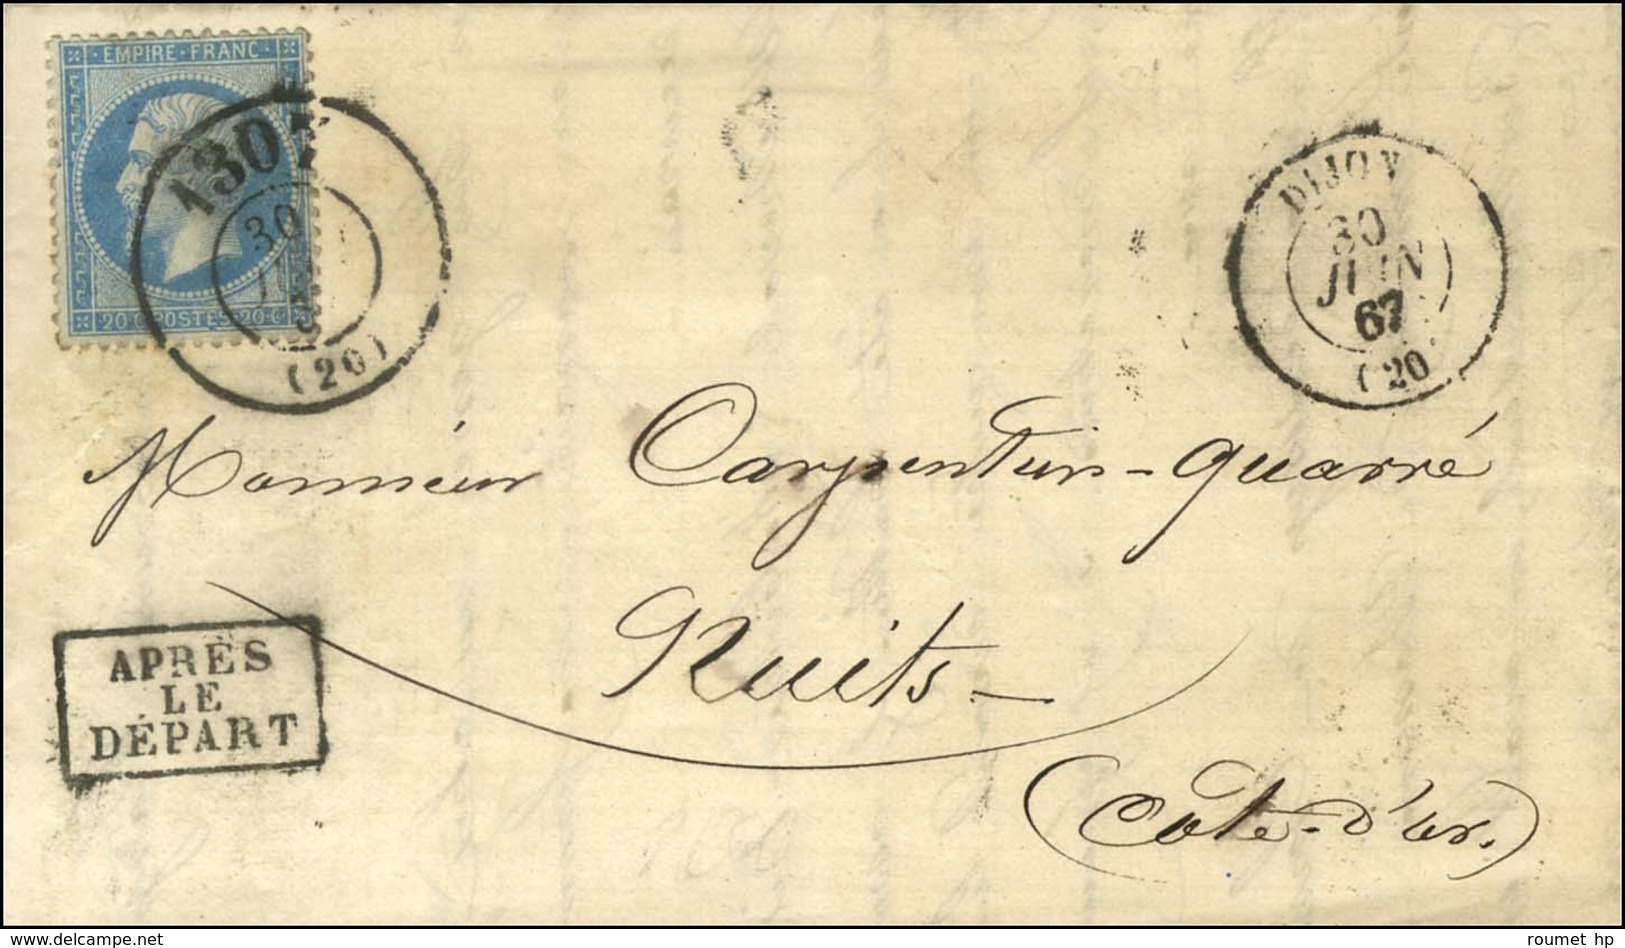 EMPIRE · FRANC
1307
30
20·C POSTES 20·C
(20)
DIJON
30
JUIN
67
(20
Monsieur Carpentier-Quarré
Nuits
(Côte-d'or.)
APRÈS
LE
DÉPART
www.delcampe.net
roumet hp